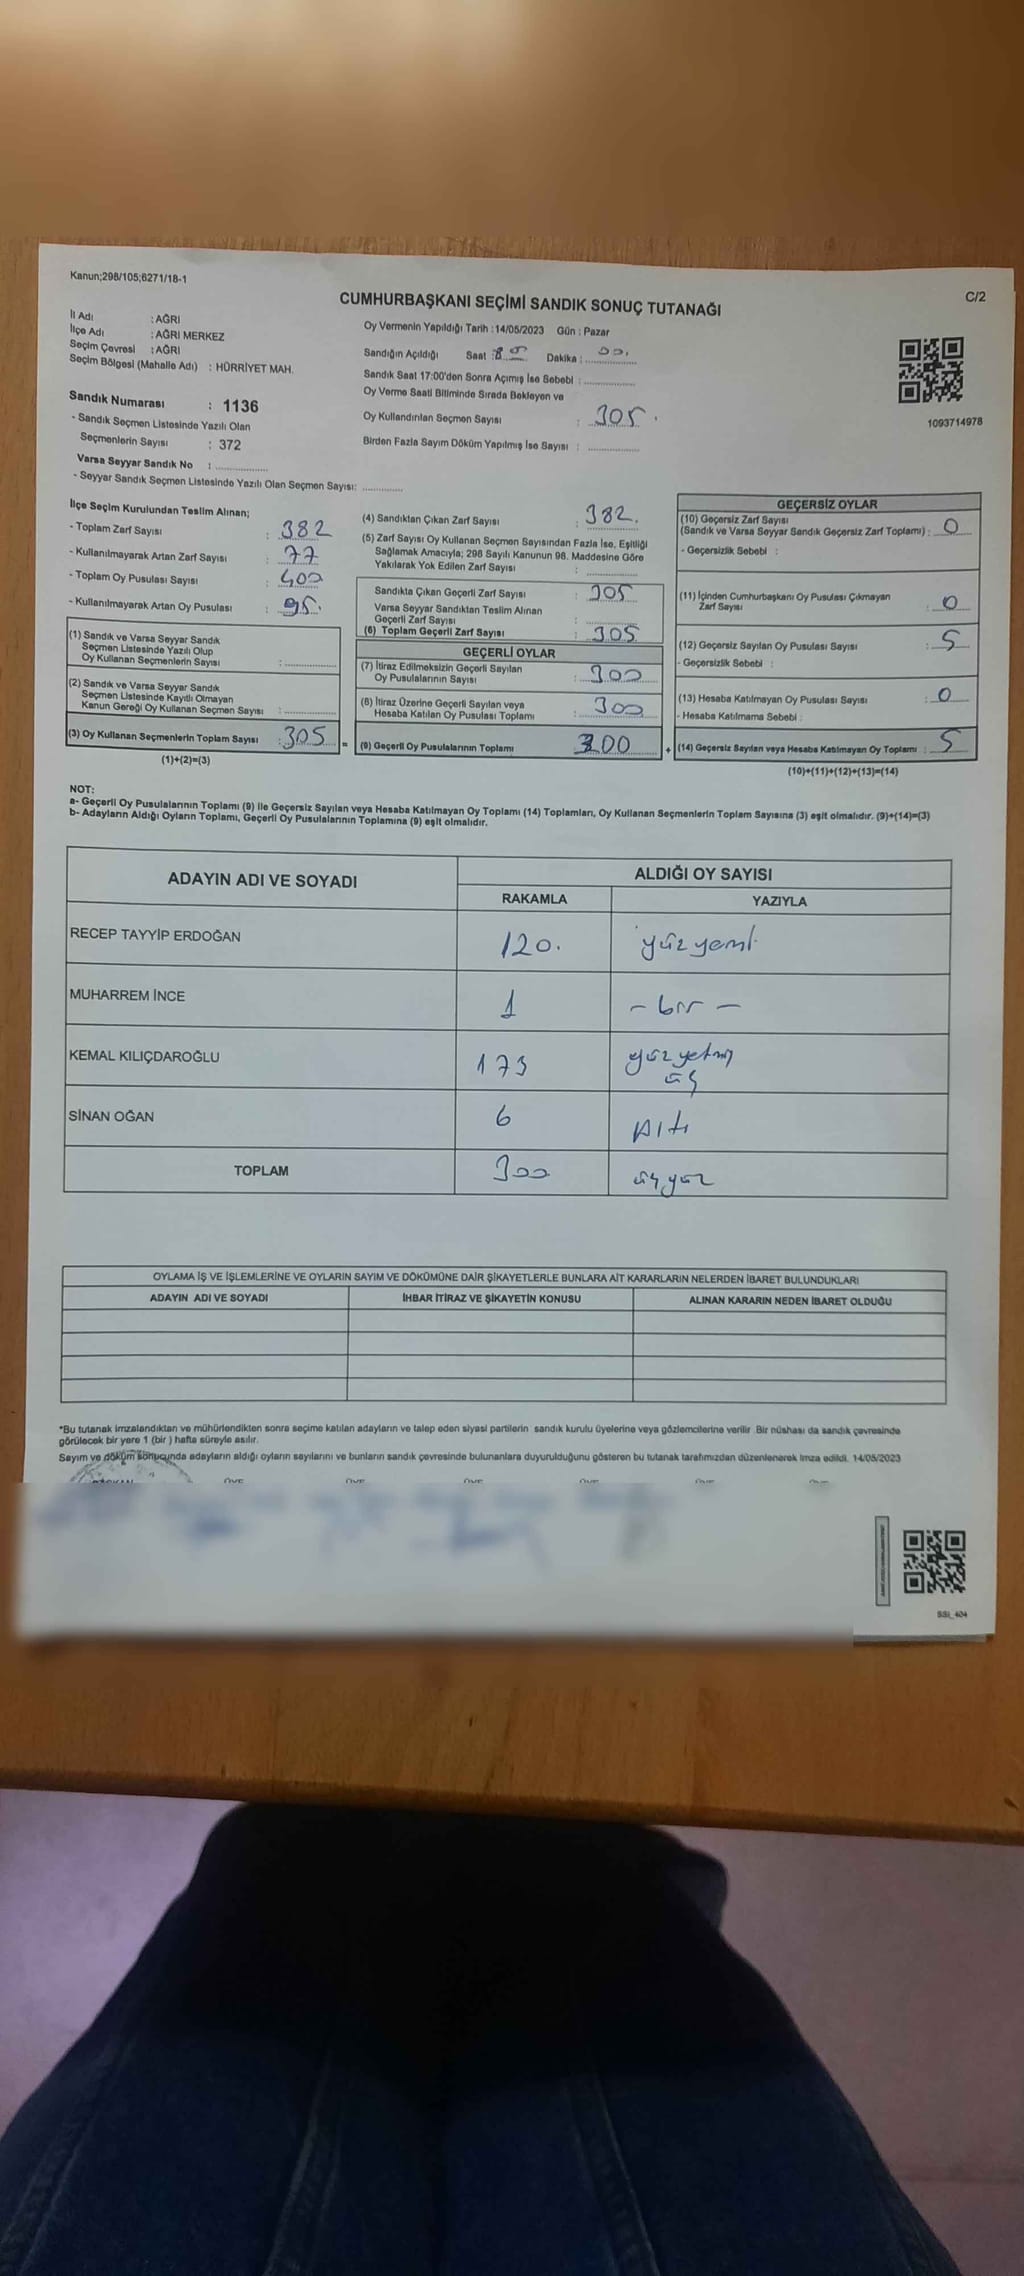 Kanun;298/105;6271/18-1
C/2
CUMHURBAŞKANI SEÇİMİ SANDIK SONUÇ TUTANAĞI
İl Adı : AĞRI
İlçe Adı : AĞRI MERKEZ
Seçim Çevresi : AĞRI
Seçim Bölgesi (Mahalle Adı) : HÜRRİYET MAH.
Sandık Numarası : 1136
- Sandık Seçmen Listesinde Yazılı Olan
Seçmenlerin Sayısı : 372
Varsa Seyyar Sandık No : ................
- Seyyar Sandık Seçmen Listesinde Yazılı Olan Seçmen Sayısı: ............
Oy Vermenin Yapıldığı Tarih : 14/05/2023 Gün : Pazar
Sandığın Açıldığı Saat : 8 Dakika : 00.
Sandık Saat 17:00'den Sonra Açımış İse Sebebi : ...............
Oy Verme Saati Bitiminde Sırada Bekleyen ve
Oy Kullandırılan Seçmen Sayısı : 305.
Birden Fazla Sayım Döküm Yapılmış İse Sayısı : ...............
1093714978
İlçe Seçim Kurulundan Teslim Alınan;
- Toplam Zarf Sayısı : 382
- Kullanılmayarak Artan Zarf Sayısı : 77
- Toplam Oy Pusulası Sayısı : 400
- Kullanılmayarak Artan Oy Pusulası : 95.
(1) Sandık ve Varsa Seyyar Sandık
Seçmen Listesinde Yazılı Olup
Oy Kullanan Seçmenlerin Sayısı : ...............
(2) Sandık ve Varsa Seyyar Sandık
Seçmen Listesinde Kayıtlı Olmayan
Kanun Gereği Oy Kullanan Seçmen Sayısı : ...............
(3) Oy Kullanan Seçmenlerin Toplam Sayısı : 305 =
(1)+(2)=(3)
(4) Sandıktan Çıkan Zarf Sayısı : 382.
(5) Zarf Sayısı Oy Kullanan Seçmen Sayısından Fazla İse, Eşitliği
Sağlamak Amacıyla; 298 Sayılı Kanunun 98. Maddesine Göre
Yakılarak Yok Edilen Zarf Sayısı : ...............
Sandıkta Çıkan Geçerli Zarf Sayısı : 305
Varsa Seyyar Sandıktan Teslim Alınan
Geçerli Zarf Sayısı : ...............
(6) Toplam Geçerli Zarf Sayısı : 305
GEÇERLİ OYLAR
(7) İtiraz Edilmeksizin Geçerli Sayılan
Oy Pusulalarının Sayısı : 300
(8) İtiraz Üzerine Geçerli Sayılan veya
Hesaba Katılan Oy Pusulası Toplamı : 300
(9) Geçerli Oy Pusulalarının Toplamı 300 +
GEÇERSİZ OYLAR
(10) Geçersiz Zarf Sayısı
(Sandık ve Varsa Seyyar Sandık Geçersiz Zarf Toplamı) : 0
- Geçersizlik Sebebi :
(11) İçinden Cumhurbaşkanı Oy Pusulası Çıkmayan
Zarf Sayısı : 0
(12) Geçersiz Sayılan Oy Pusulası Sayısı : 5
- Geçersizlik Sebebi :
(13) Hesaba Katılmayan Oy Pusulası Sayısı : 0
- Hesaba Katılmama Sebebi :
(14) Geçersiz Sayılan veya Hesaba Katılmayan Oy Toplamı : 5
(10)+(11)+(12)+(13)=(14)
NOT:
a- Geçerli Oy Pusulalarının Toplamı (9) ile Geçersiz Sayılan veya Hesaba Katılmayan Oy Toplamı (14) Toplamları, Oy Kullanan Seçmenlerin Toplam Sayısına (3) eşit olmalıdır. (9)+(14)=(3)
b- Adayların Aldığı Oyların Toplamı, Geçerli Oy Pusulalarının Toplamına (9) eşit olmalıdır.
ADAYIN ADI VE SOYADI ALDIĞI OY SAYISI
RAKAMLA YAZIYLA
RECEP TAYYİP ERDOĞAN 120. yüz yirmi
MUHARREM İNCE 1 - bir -
KEMAL KILIÇDAROĞLU 173 yüz yetmiş
üç
SİNAN OĞAN 6 Altı
TOPLAM 300 üç yüz
OYLAMA İŞ VE İŞLEMLERİNE VE OYLARIN SAYIM VE DÖKÜMÜNE DAİR ŞİKAYETLERLE BUNLARA AİT KARARLARIN NELERDEN İBARET BULUNDUKLARI
ADAYIN ADI VE SOYADI İHBAR İTİRAZ VE ŞİKAYETİN KONUSU ALINAN KARARIN NEDEN İBARET OLDUĞU
*Bu tutanak imzalandıktan ve mühürlendikten sonra seçime katılan adayların ve talep eden siyasi partilerin sandık kurulu üyelerine veya gözlemcilerine verilir. Bir nüshası da sandık çevresinde
görülecek bir yere 1 (bir ) hafta süreyle asılır.
Sayım ve döküm sonucunda adayların aldığı oyların sayılarını ve bunların sandık çevresinde bulunanlara duyurulduğunu gösteren bu tutanak tarafımızdan düzenlenerek imza edildi. 14/05/2023
SSİ_404